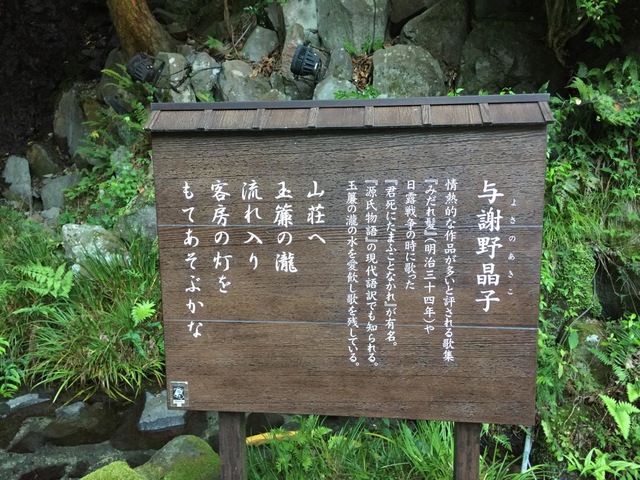 与謝野晶子
よさのあきこ
情熱的な作品が多いと評される歌集
『みだれ髪』(明治三十四年)や
日露戦争の時に歌った
『君死にたまふことなかれ』が有名。
『源氏物語』の現代語訳でも知られる。
玉簾の瀧の水を愛飲し歌を残している。
山荘へ
玉簾の瀧
流れ入り
客房の灯を
もてあそぶかな